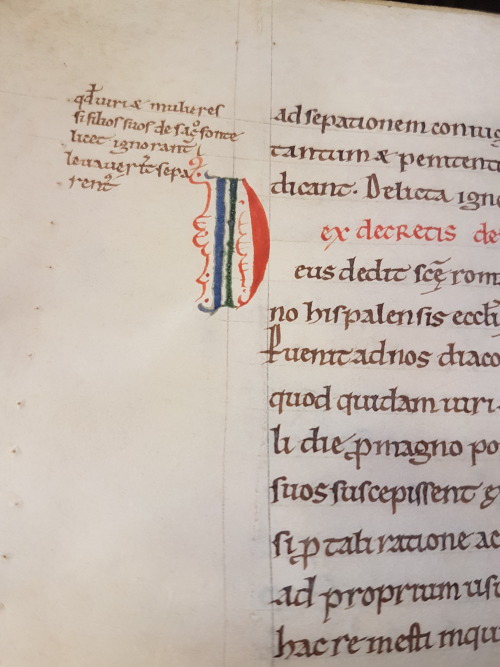 qđ uiri & mulieres
si filios suos de sac̄ fonte
licet ignorant̄
leuauer̄t sepa
rent᷑
ad sepationem coniug
tantum & penitent
dicant. Delicta igno
ex decretis de
D
eus dedit sc̄ę rom
no hispalensis eccl̄
Ꝑuenit ad nos diaco
quod quidam uiri
li die ꝓ magno po
suos suscepissent
si ꝓ tali ratione ac
ad proprium us
hac re mesti inqui